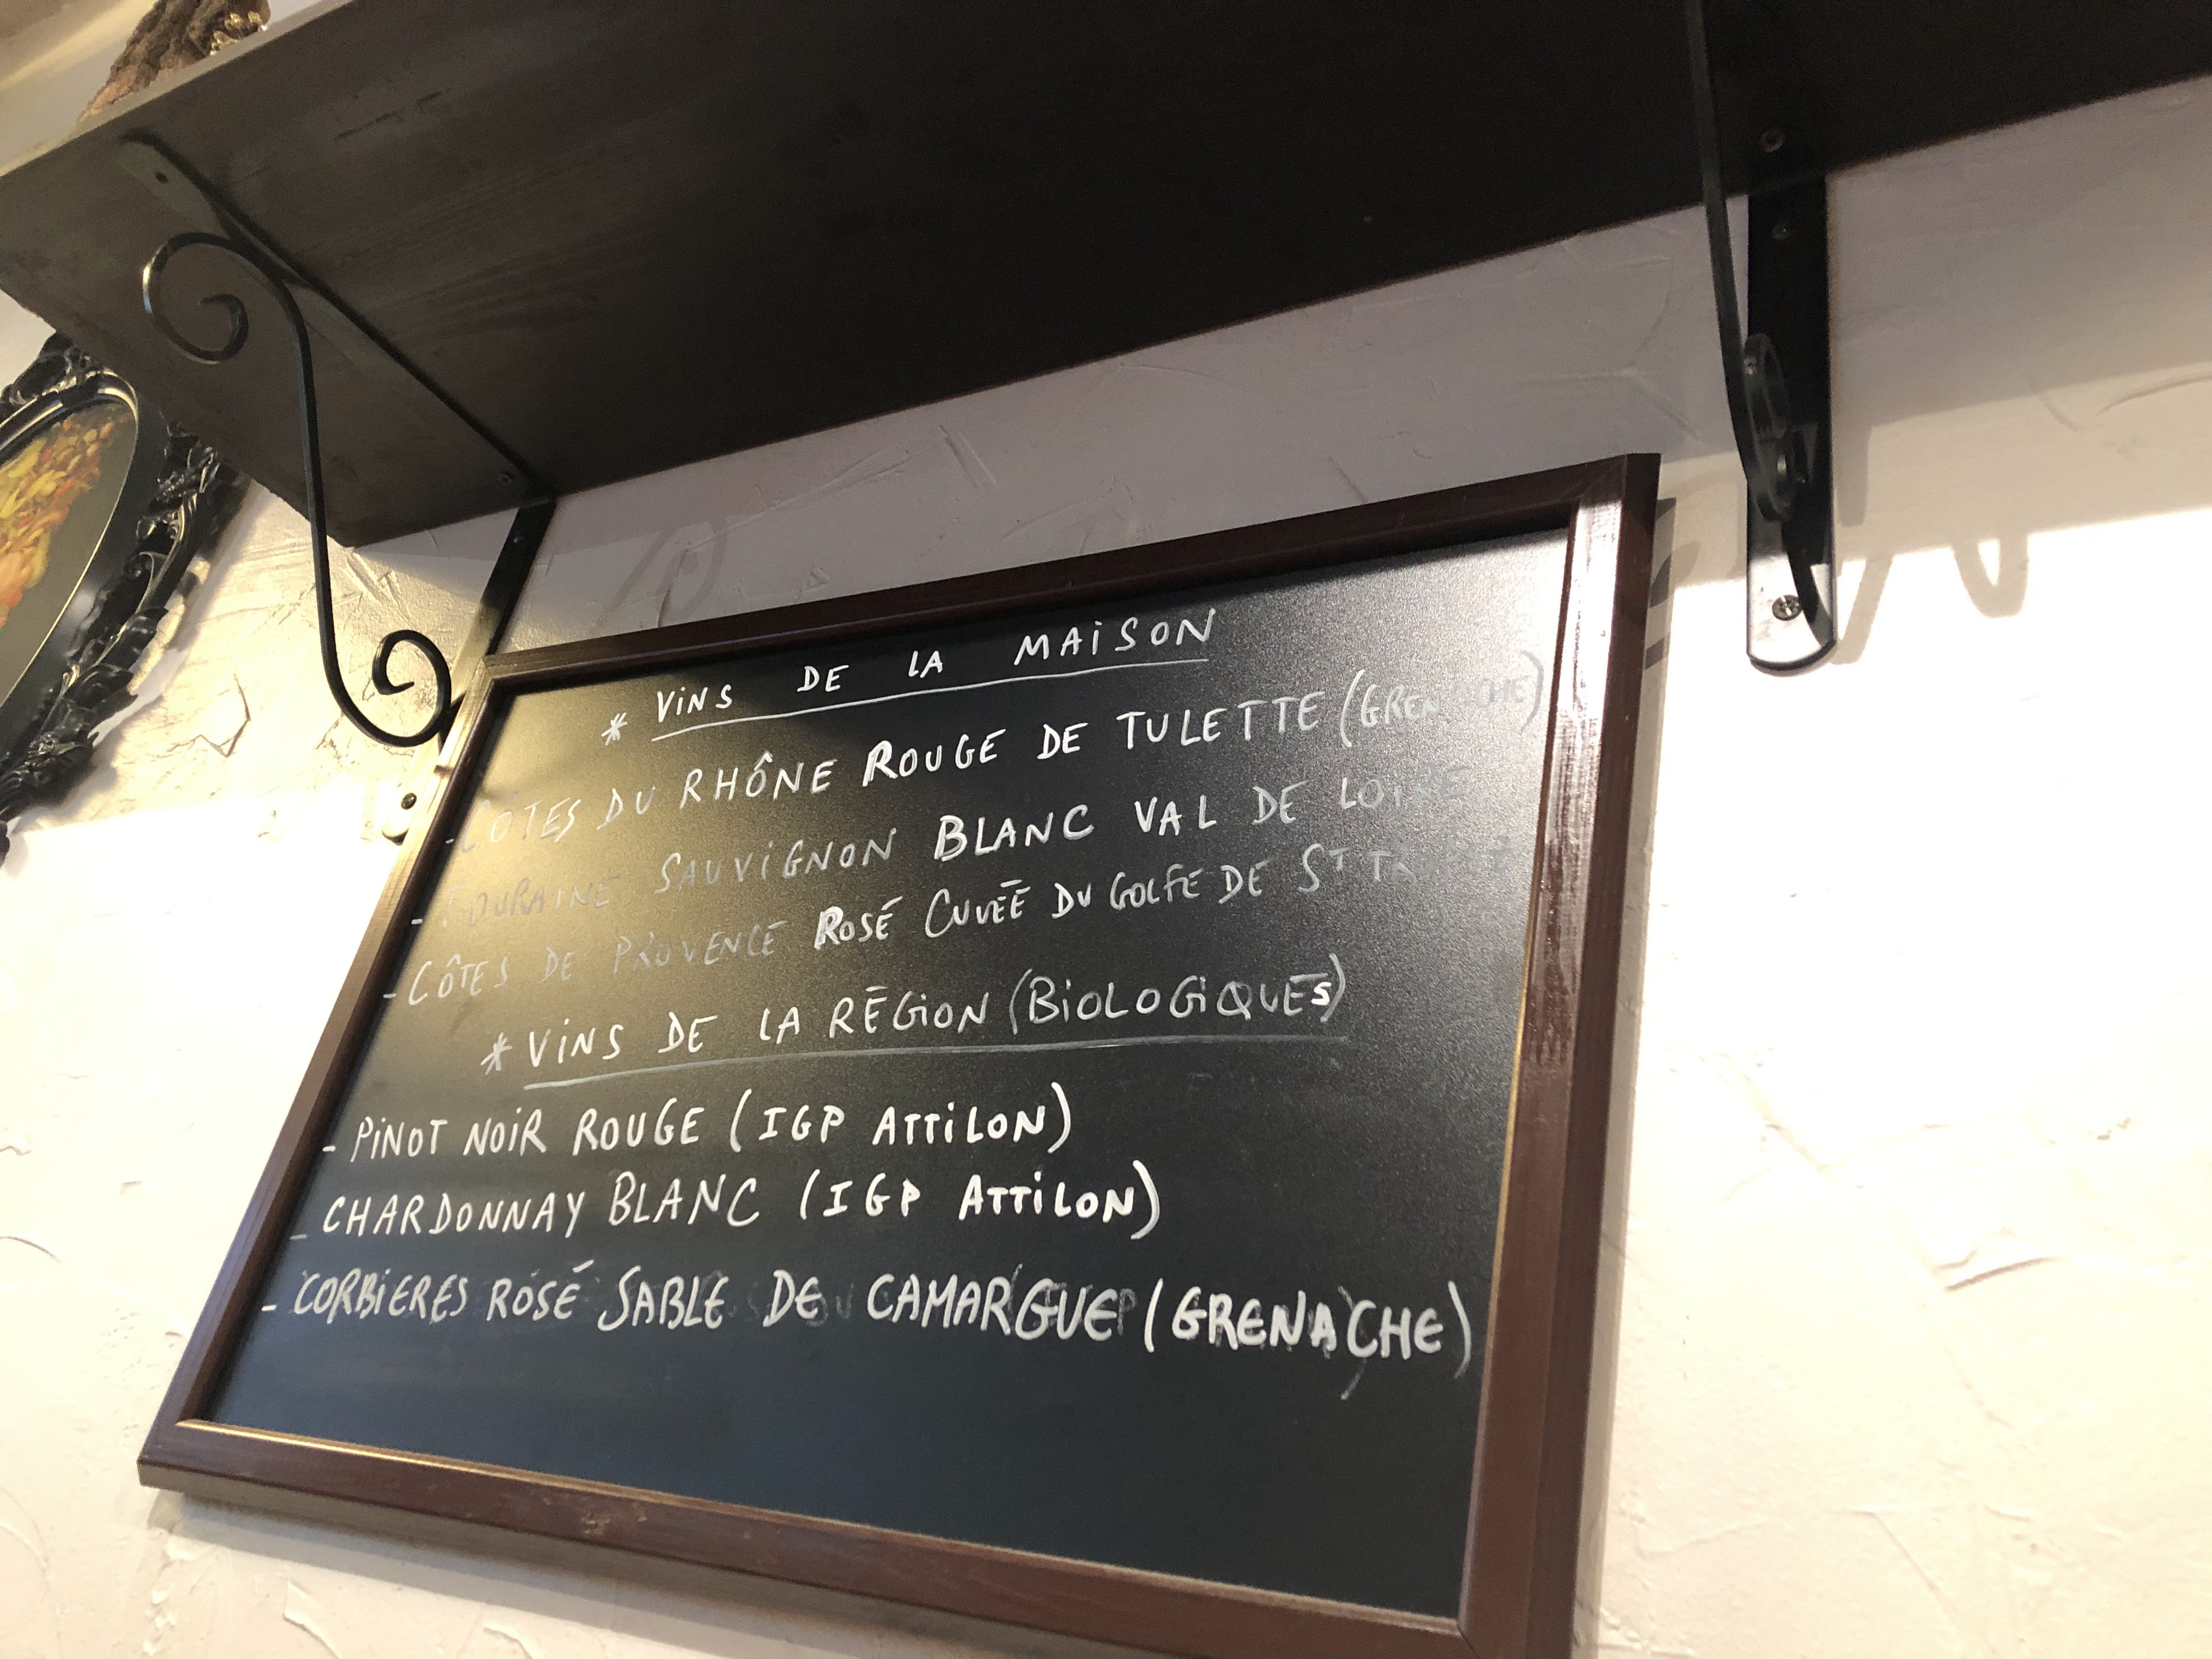 * ViNS DE LA MAiSON
- COTES DU RHÔNE ROUGE DE TULETTE (GRENACHE)
- TOURAINE SAUViGNON BLANC VAL DE LOIRE
- CÔTES DE PROVENCE ROSÉ CUVÉE DU GOLFE DE ST
* ViNS DE LA RÉGiON (BiOLOGiQUES)
- PiNOT NOiR ROUGE (IGP ATTiLON)
_ CHARDONNAY BLANC (IGP ATTiLON)
- CORBiERES ROSÉ SABLE DE CAMARGUE (GRENACHE)